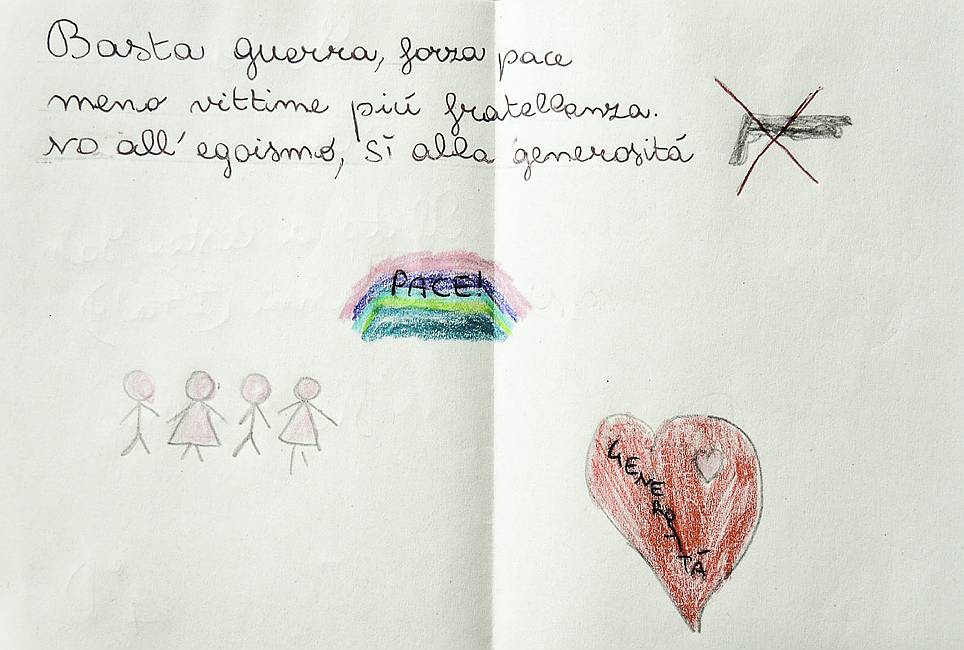 Basta guerra, forza pace
meno vittime piú fratellanza.
no all' egoismo, Sì alla generositá
PACE!
GENEROSITÁ